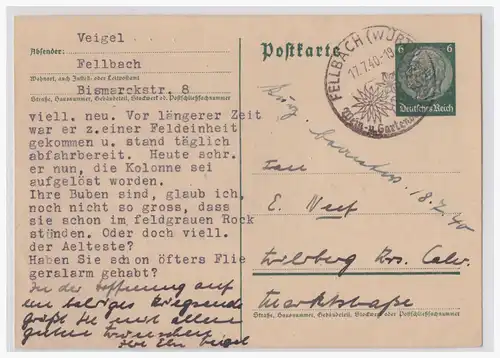 Veigel
Absender:
Fellbach
Wohnort, auch Zustell- oder Leitpostamt
Bismarckstr. 8
Straße, Hausnummer, Gebäudeteil, Stockwerk od. Postschließfachnummer
viell. neu. Vor längerer Zeit
war er z.einer Feldeinheit
gekommen u. stand täglich
abfahrbereit. Heute schr.
er nun, die Kolonne sei
aufgelöst worden.
Ihre Buben sind, glaub ich,
noch nicht so gross, dass
sie schon im feldgrauen Rock
ständen. Oder doch viell.
der Aelteste?
Haben Sie schon öfters Flie
geralarm gehabt?
In der Hoffnung auf
ein baldiges Kriegsende
grüßt Sie mit allen
guten Wünschen
Ihre Elw Veigel
Postkarte
FELLBACH (WÜRTT
17.7.40-19
Wein- u. Garten
6 6
Deutsches Reich
18.7.40
E.
Calw.
Marktstraße
Straße, Hausnummer, Gebäudeteil, Stockwerk oder Postschließfachnummer